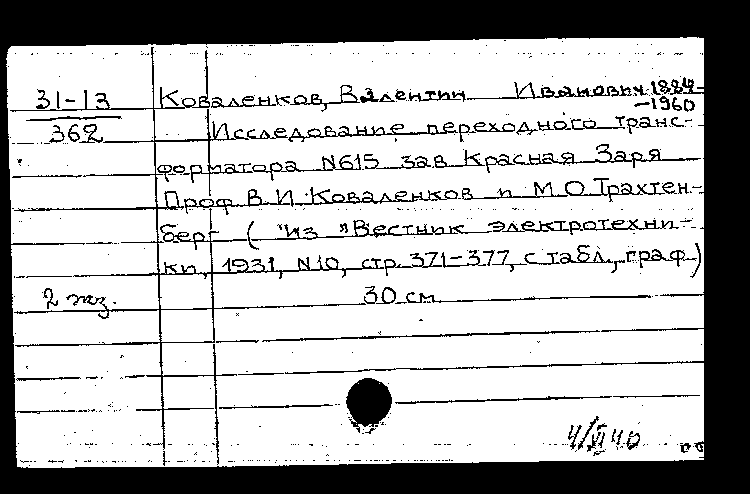 31-13
362
Коваленков, Валентин Иванович 1884-
-1960
Исследование переходного транс-
форматора N615 зав Красная Заря
Проф. В. И. Коваленков и М. О. Трахтен-
берг ( "Из "Вестник электротехни-
ки, 1931, N10, стр. 371-377, с табл., граф.)
2 экз.
30 см.
4/VI 40